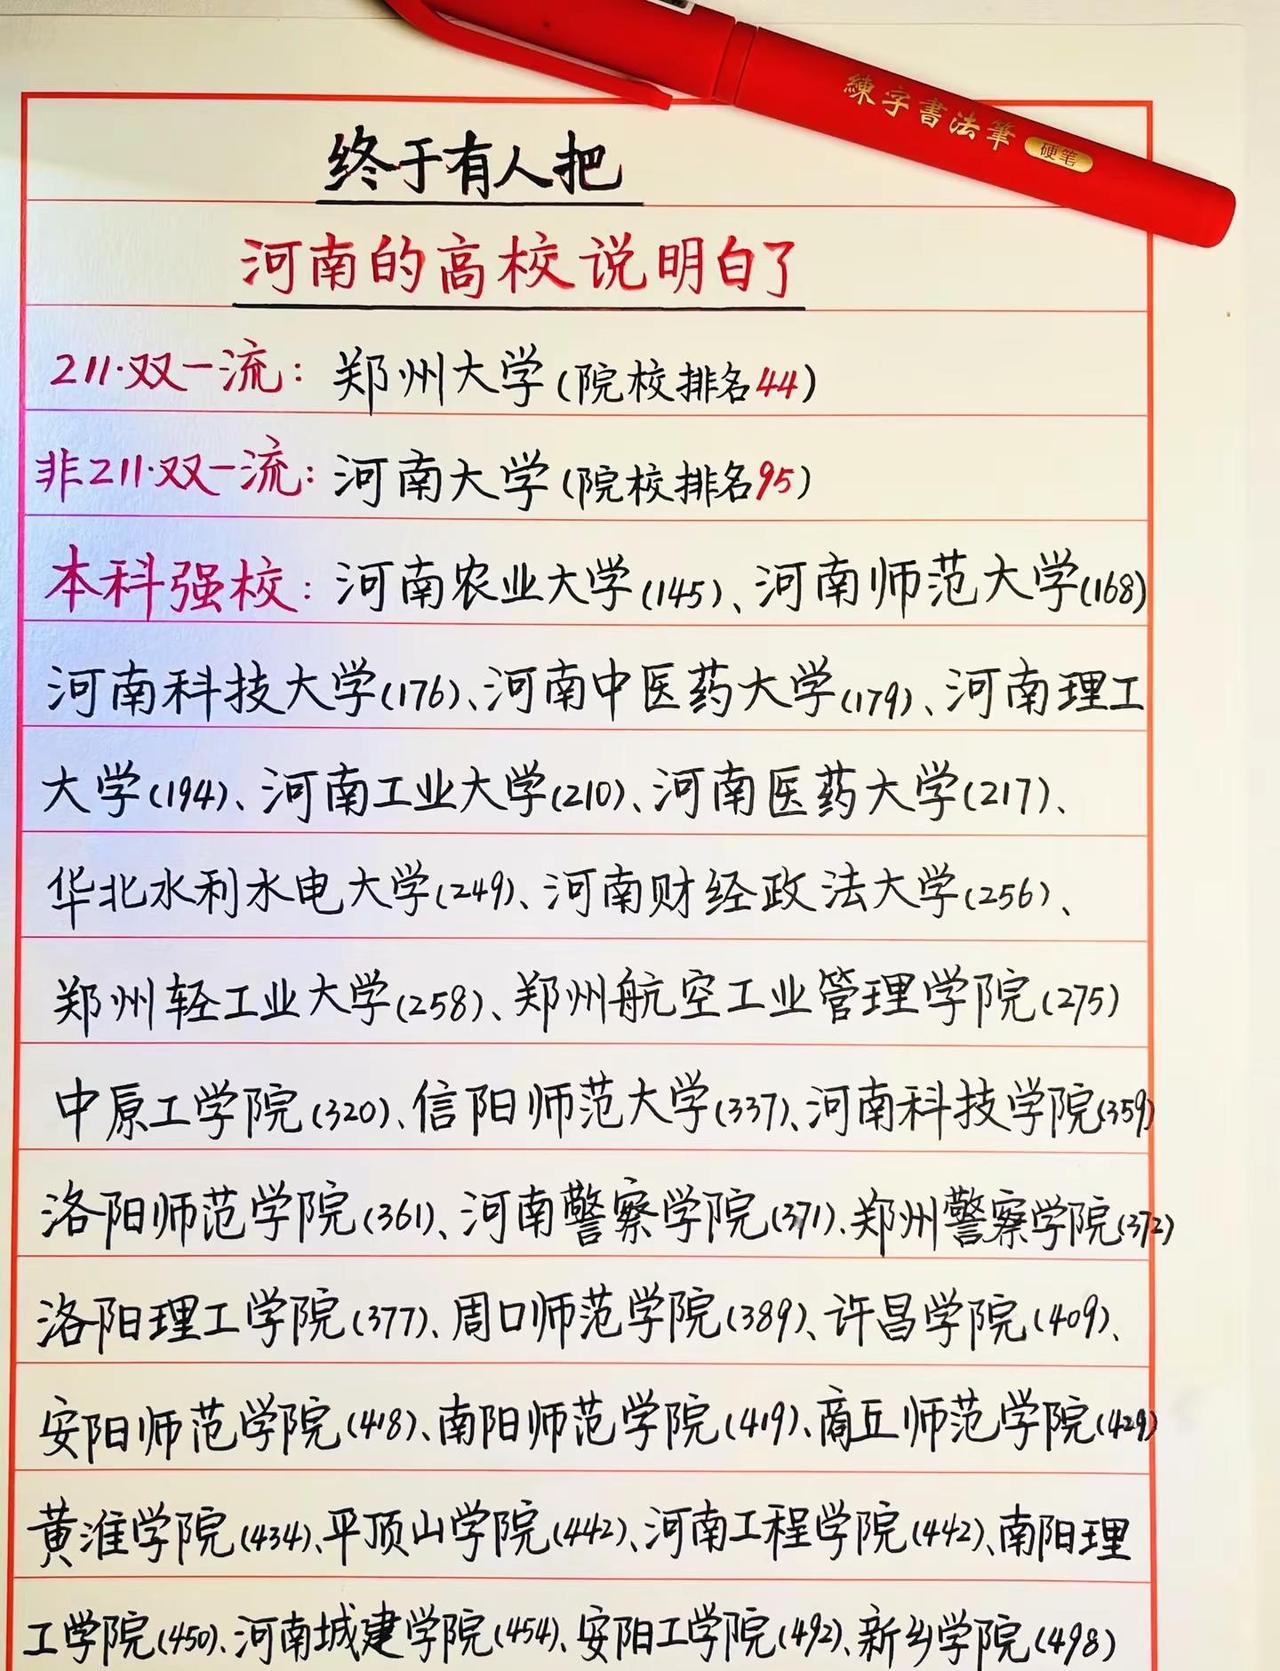 練字書法筆 硬笔
终于有人把
河南的高校说明白了
211·双一流：郑州大学(院校排名44)
非211·双一流：河南大学(院校排名95)
本科强校：河南农业大学(145)、河南师范大学(168)
河南科技大学(176)、河南中医药大学(179)、河南理工
大学(194)、河南工业大学(210)、河南医药大学(217)、
华北水利水电大学(249)、河南财经政法大学(256)、
郑州轻工业大学(258)、郑州航空工业管理学院(275)
中原工学院(320)、信阳师范大学(337)、河南科技学院(359)
洛阳师范学院(361)、河南警察学院(371)、郑州警察学院(372)
洛阳理工学院(377)、周口师范学院(389)、许昌学院(409)、
安阳师范学院(418)、南阳师范学院(419)、商丘师范学院(429)
黄淮学院(434)、平顶山学院(442)、河南工程学院(442)、南阳理
工学院(450)、河南城建学院(454)、安阳工学院(492)、新乡学院(498)